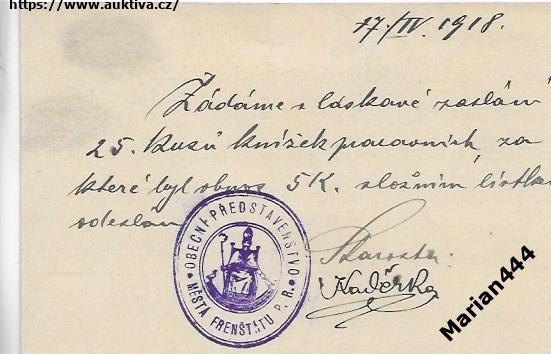 https://www.auktiva.cz/
17./IV. 1918.
Žádáme o láskavé zaslán
25. kusů knížek pracovních, za
které byl obnos 5K. složním lístkem
odeslán
Starosta:
OBECNÍ PŘEDSTAVENSTVO
MĚSTA FRENŠTÁTU P. R.
Marian444